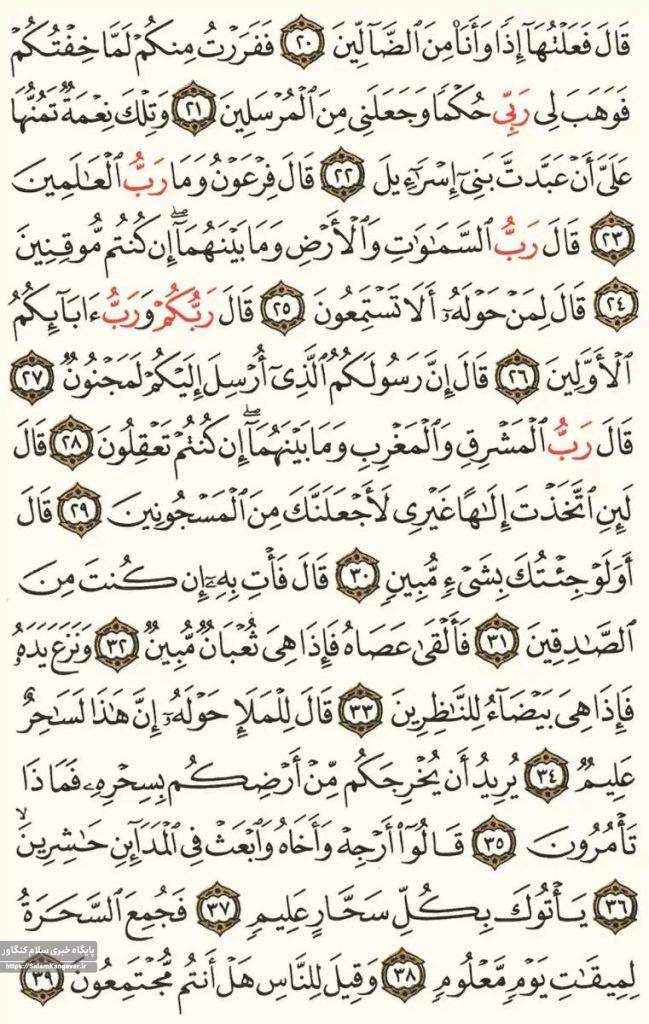 قَالَ فَعَلْتُهَآ إِذًا وَأَنَا۠ مِنَ ٱلضَّآلِّينَ ٢٠ فَفَرَرْتُ مِنكُمْ لَمَّا خِفْتُكُمْ
فَوَهَبَ لِى رَبِّى حُكْمًا وَجَعَلَنِى مِنَ ٱلْمُرْسَلِينَ ٢١ وَتِلْكَ نِعْمَةٌ تَمُنُّهَا
عَلَىَّ أَنْ عَبَّدتَّ بَنِىٓ إِسْرَٰٓءِيلَ ٢٢ قَالَ فِرْعَوْنُ وَمَا رَبُّ ٱلْعَٰلَمِينَ
٢٣ قَالَ رَبُّ ٱلسَّمَٰوَٰتِ وَٱلْأَرْضِ وَمَا بَيْنَهُمَآ ۖ إِن كُنتُم مُّوقِنِينَ
٢٤ قَالَ لِمَنْ حَوْلَهُۥٓ أَلَا تَسْتَمِعُونَ ٢٥ قَالَ رَبُّكُمْ وَرَبُّ ءَابَآئِكُمُ
ٱلْأَوَّلِينَ ٢٦ قَالَ إِنَّ رَسُولَكُمُ ٱلَّذِىٓ أُرْسِلَ إِلَيْكُمْ لَمَجْنُونٌ ٢٧
قَالَ رَبُّ ٱلْمَشْرِقِ وَٱلْمَغْرِبِ وَمَا بَيْنَهُمَآ ۖ إِن كُنتُمْ تَعْقِلُونَ ٢٨ قَالَ
لَئِنِ ٱتَّخَذْتَ إِلَٰهًا غَيْرِى لَأَجْعَلَنَّكَ مِنَ ٱلْمَسْجُونِينَ ٢٩ قَالَ
أَوَلَوْ جِئْتُكَ بِشَىْءٍ مُّبِينٍ ٣٠ قَالَ فَأْتِ بِهِۦٓ إِن كُنتَ مِنَ
ٱلصَّٰدِقِينَ ٣١ فَأَلْقَىٰ عَصَاهُ فَإِذَا هِىَ ثُعْبَانٌ مُّبِينٌ ٣٢ وَنَزَعَ يَدَهُۥ
فَإِذَا هِىَ بَيْضَآءُ لِلنَّٰظِرِينَ ٣٣ قَالَ لِلْمَلَإِ حَوْلَهُۥٓ إِنَّ هَٰذَا لَسَٰحِرٌ
عَلِيمٌ ٣٤ يُرِيدُ أَن يُخْرِجَكُم مِّنْ أَرْضِكُم بِسِحْرِهِۦ فَمَاذَا
تَأْمُرُونَ ٣٥ قَالُوٓا۟ أَرْجِهْ وَأَخَاهُ وَٱبْعَثْ فِى ٱلْمَدَآئِنِ حَٰشِرِينَ ۙ
٣٦ يَأْتُوكَ بِكُلِّ سَحَّارٍ عَلِيمٍ ٣٧ فَجُمِعَ ٱلسَّحَرَةُ
لِمِيقَٰتِ يَوْمٍ مَّعْلُومٍ ٣٨ وَقِيلَ لِلنَّاسِ هَلْ أَنتُم مُّجْتَمِعُونَ ٣٩
پایگاه خبری سلام کنگاور
https://SalamKangavar.ir